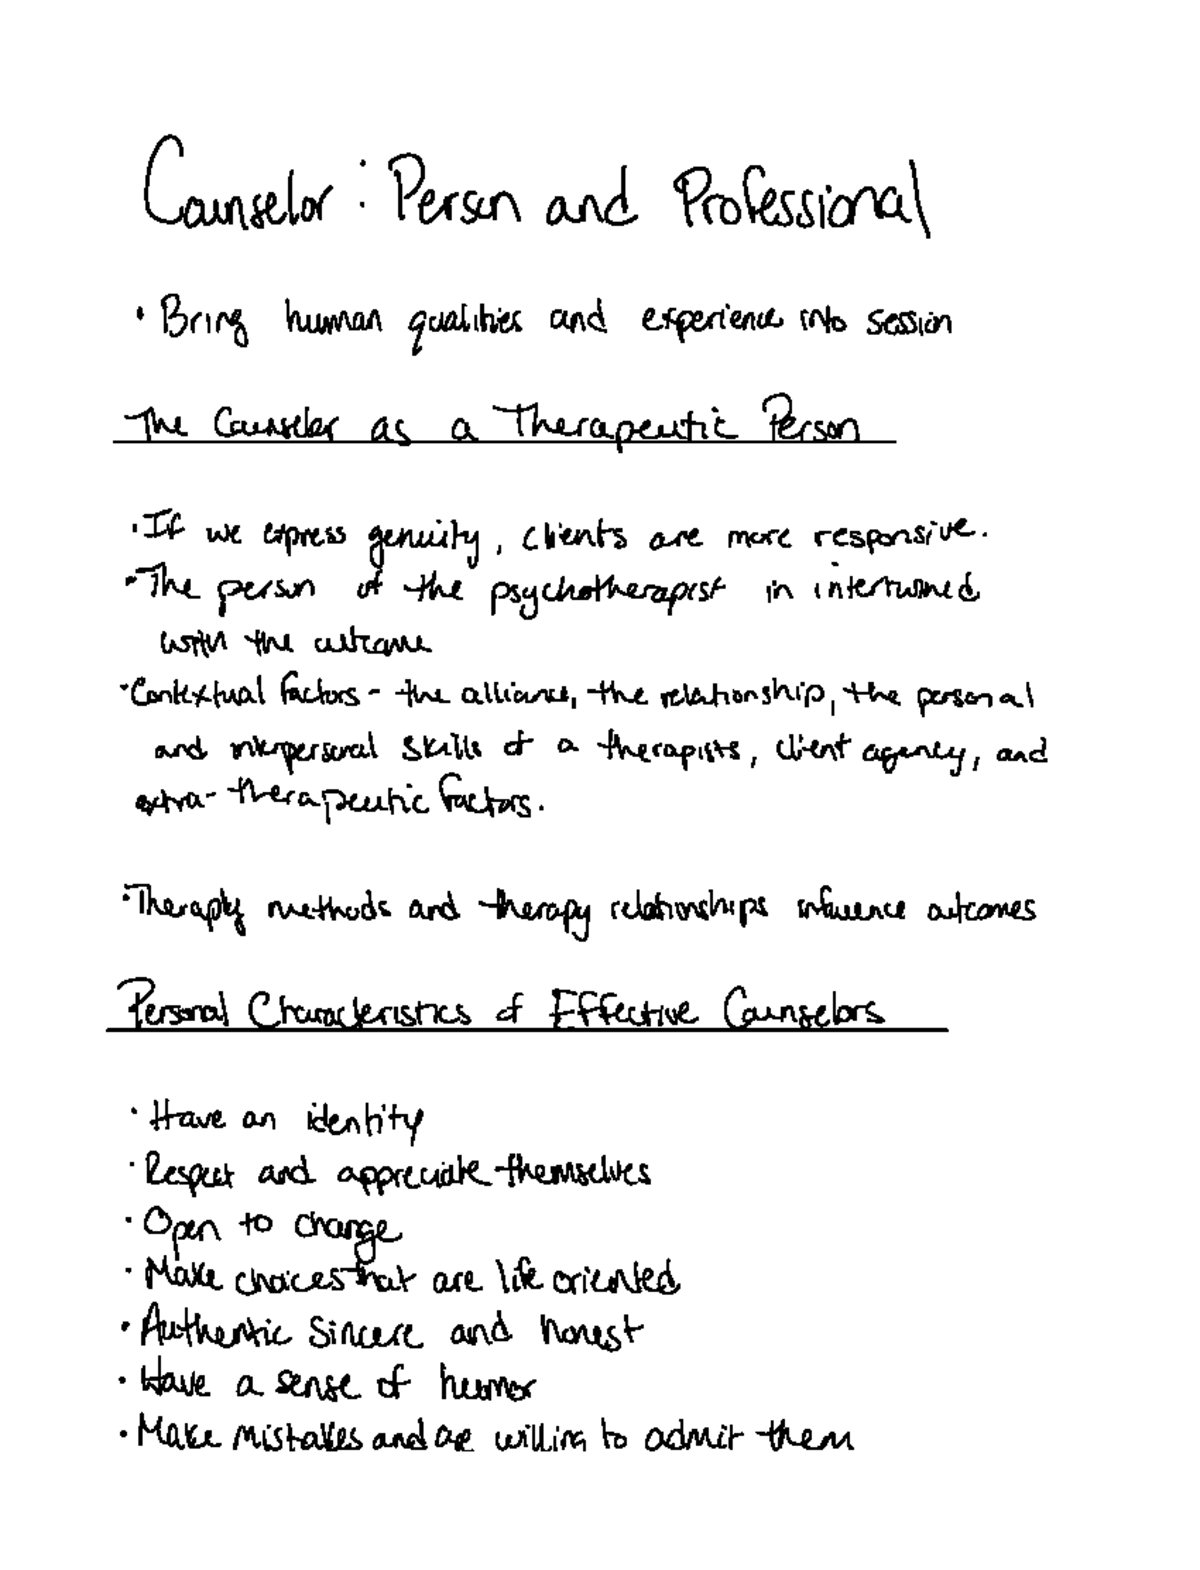 Counselor: Person and Professional
· Bring human qualities and experience into session
The Counselor as a Therapeutic Person
· If we express genuity, clients are more responsive.
· The person of the psychotherapist in intertwined
with the outcome
· Contextual factors - the alliance, the relationship, the personal
and interpersonal skills of a therapists, client agency, and
extra-therapeutic factors.
· Therapy methods and therapy relationships influence outcomes
Personal Characteristics of Effective Counselors
· Have an identity
· Respect and appreciate themselves
· Open to change
· Make choices that are life oriented
· Authentic Sincere and honest
· Have a sense of humor
· Make mistakes and are willing to admit them